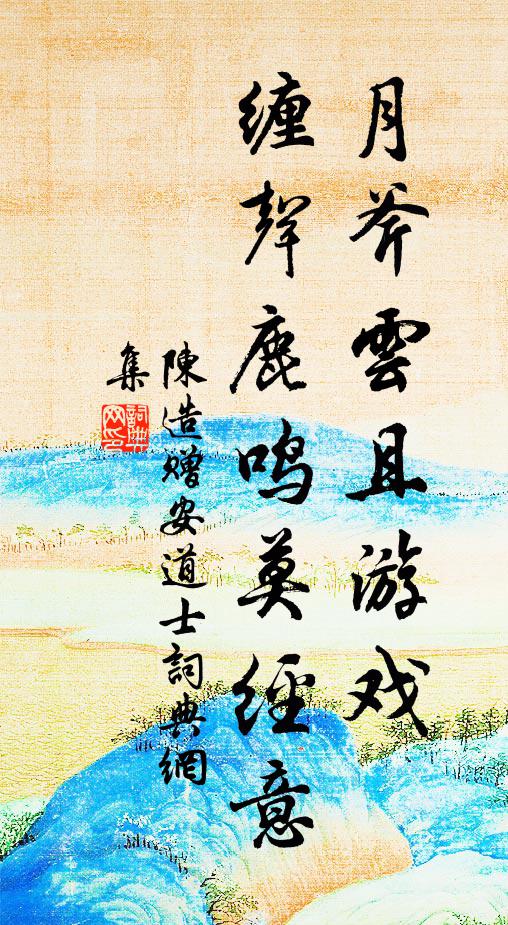 月斧雲且游戏
缠聲鹿鸣莫经意
陳造赠安道士詞典網
集
詞典網印